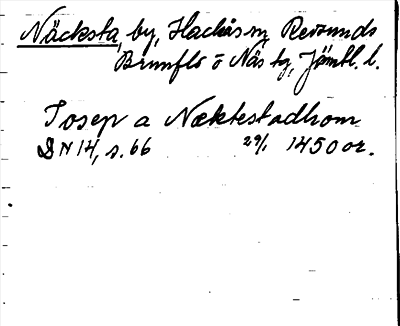 Näcksta, by, Hackås sn, Revsunds
Brunflo o Näs tg, Jämtl. l.
Josep a Næktestadhom
DN 14, s. 66 29/1 1450 or.